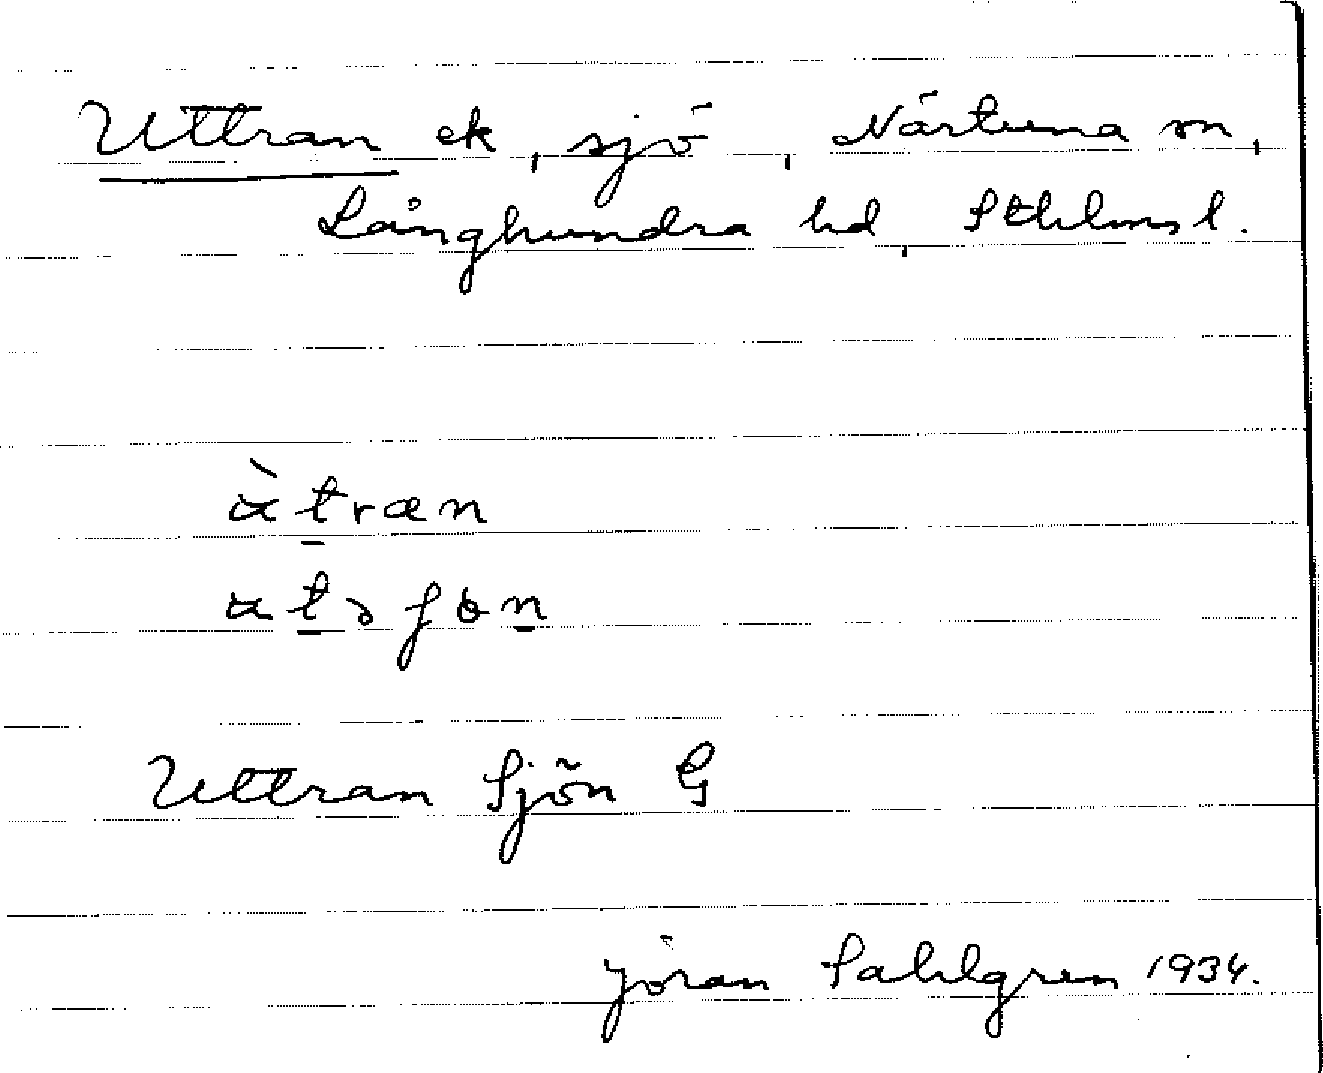 Uttran ek, sjö, Närtuna sn,
Långhundra hd, Sthlms l.
àtræn
Uttran Sjön G
Jöran Sahlgren 1934.